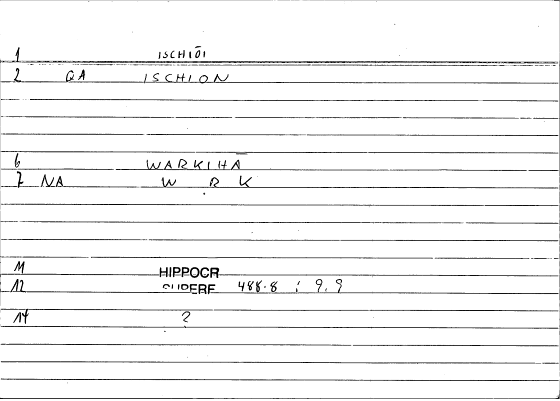 1 ISCHIŌI
2 QA ISCHION
6 WARKIHĀ
7 NA W R K
11 HIPPOCR
12 SUPERF 488.8 ; 9.9
14 ?